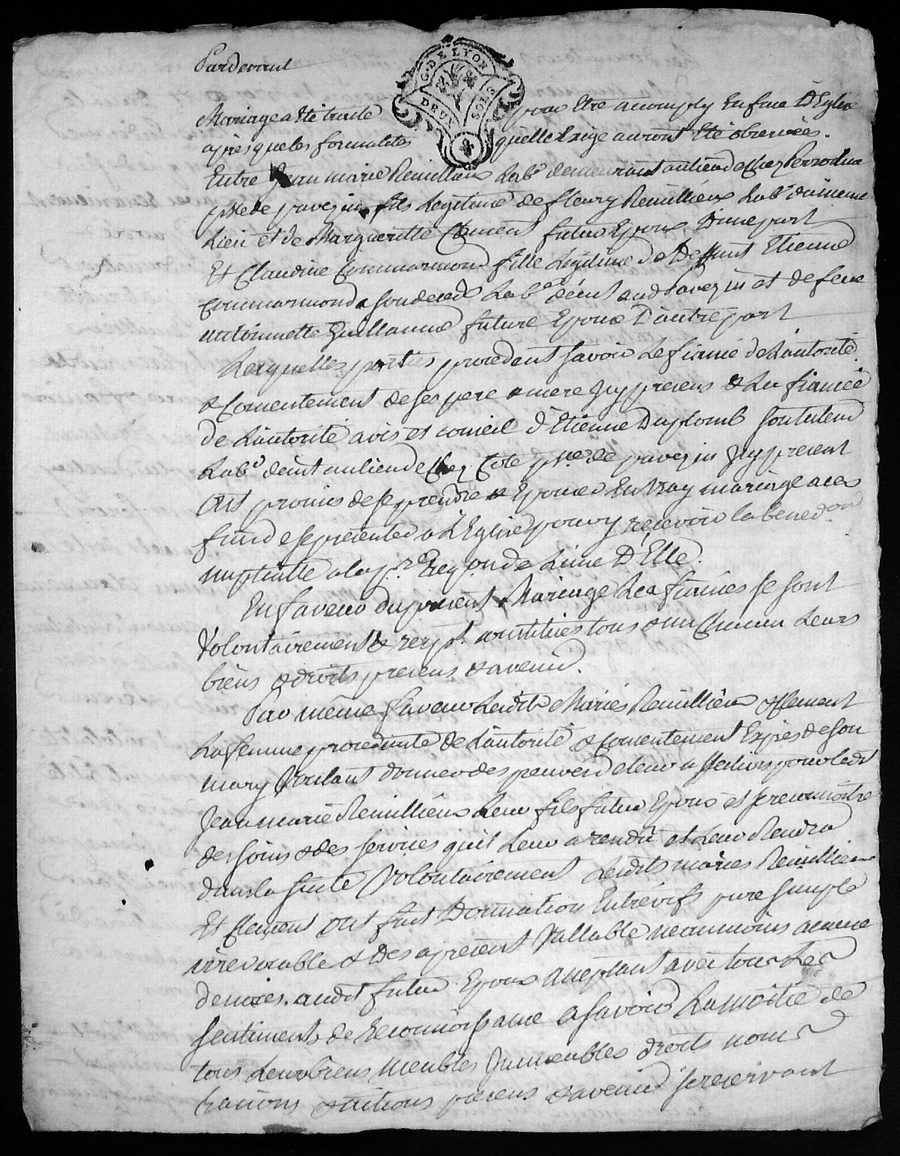 Pardevant
G. DE LYON
DEUX SOLS
Mariage a été traité pour être acomply en face d'Eglise
après que les formalités quelle exige auront Eté observées.
Entre Jean marie Remillieux Lab.r demeurant au lieu de Chez Perrodin
psse de pavezin fils Legitime de fleury Remillieux Lab.r du meme
Lieu et de Margueritte Clement futur Epoux D'une part
Et Claudine Commarmond fille Legitime de Deffunt Etienne
Commarmond a son deced Lab.r de cet and pavezin et de feue
antoinette Guillaume future Epouse D'autre part
Lesquelles parties procedant savoir Le fiancé de L'autorité
& Consentement de ses pere & mere Icy presens & La fiancée
de L'autorité avis et conseil d'Etienne Duplomb son tuteur
Lab.r de cet au lieu de Chez Cote psse de pavezin Icy present
ont promis de se prendre & Epouser En vray mariage a ces
fins de se presenter a L'Eglise pour y recevoir la bened.on
nuptialle a la p.re Req.on de L'une D'Elle.
En faveur du present Mariage Les fiancés se sont
volontairement & resp.t constitués tous & un Chacun Leurs
biens & droits presens & avenir.
Par même faveur Lesdits Mariés Remillieux & Clement
La femme procedante de L'autorité & Consentement Exprès de son
mary Voulant donner des preuves de leur affection pour led.t
Jean marie Remillieux Leur fils futur Epoux et se reconnoitre
des soins & des services qu'il Leur a rendu et Leur Rendra
dans la suite Volontairement Lesdits mariés Remillieux
Et Clement ont fait Donnation Entrevifs pure simple
irrevocable & Des apresent Vallable neanmoins a cause
de noces. audit futur Epoux acceptant avec tous Les
sentiments de Reconnoissance a savoir La moitié de
tous Leurs biens meubles Immeubles droits noms
raisons & actions presens & avenir se reservant